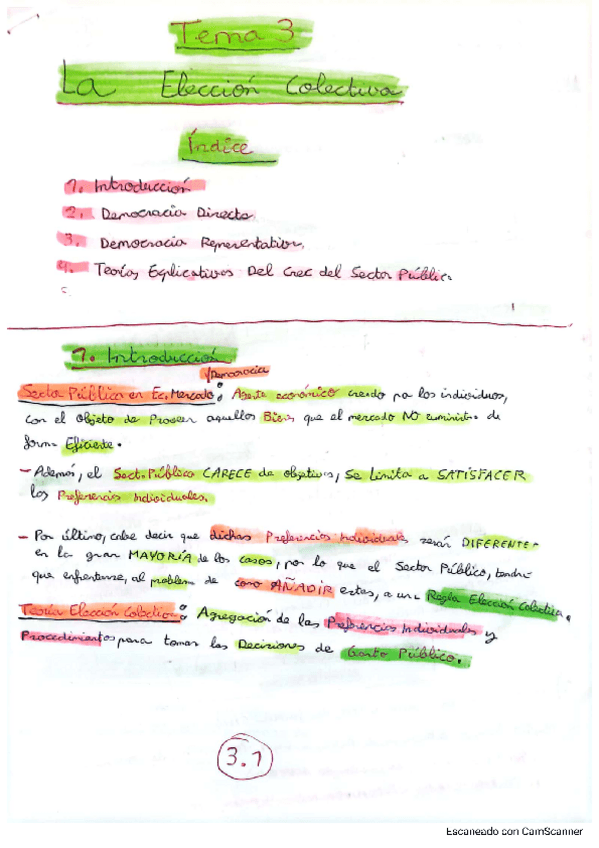 Tema 3
La Elección Colectiva
Índice
1. Introducción
2. Democracia Directa
3. Democracia Representativa
4. Teorías Explicativas Del Crec del Sector Público
1. Introducción
/Democracia
Sector Público en Ec. Mercado: Agente económico creado por los individuos,
con el objeto de Proveer aquellos Bienes que el mercado NO suministra de
forma Eficiente.
- Además, el Sect. Público CARECE de objetivos, se limita a SATISFACER
las Preferencias Individuales.
- Por último, cabe decir que dichas Preferencias Individuales serán DIFERENTES
en la gran MAYORÍA de los casos, por lo que el Sector Público, tendrá
que enfrentarse, al problema de como AÑADIR estas, a una Regla Elección Colectiva.
Teoría Elección Colectiva: Agregación de las Preferencias Individuales y
Procedimientos para tomar las Decisiones de Gasto Público.
3.1
Escaneado con CamScanner